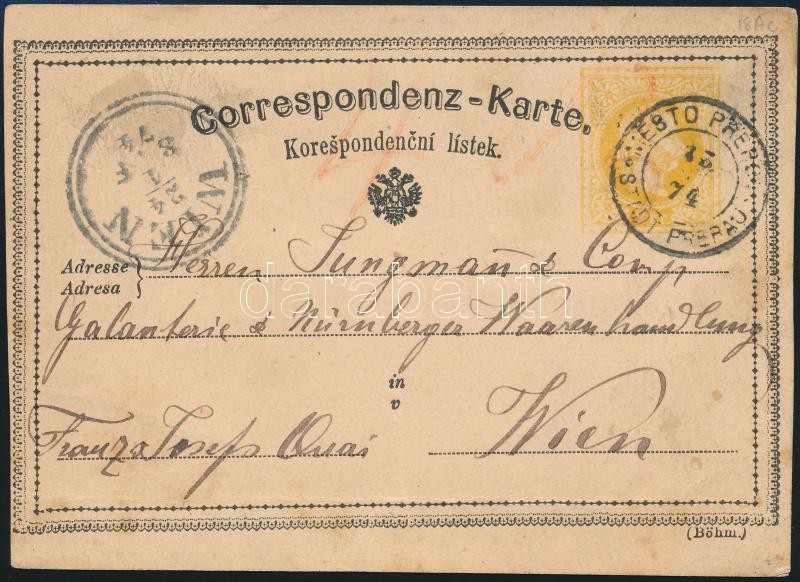 18Ac
Correspondenz-Karte.
Korešpondenční lístek.
MĚSTO PŘER
STADT PRERAU
15
74
WIEN
Adresse
Adresa
Herren Jungmañ & Comp
Galanterie & Nürnberger Waarenhandlung
in
v
Franz Josefs Quai Wien
(Böhm.)
darabanth